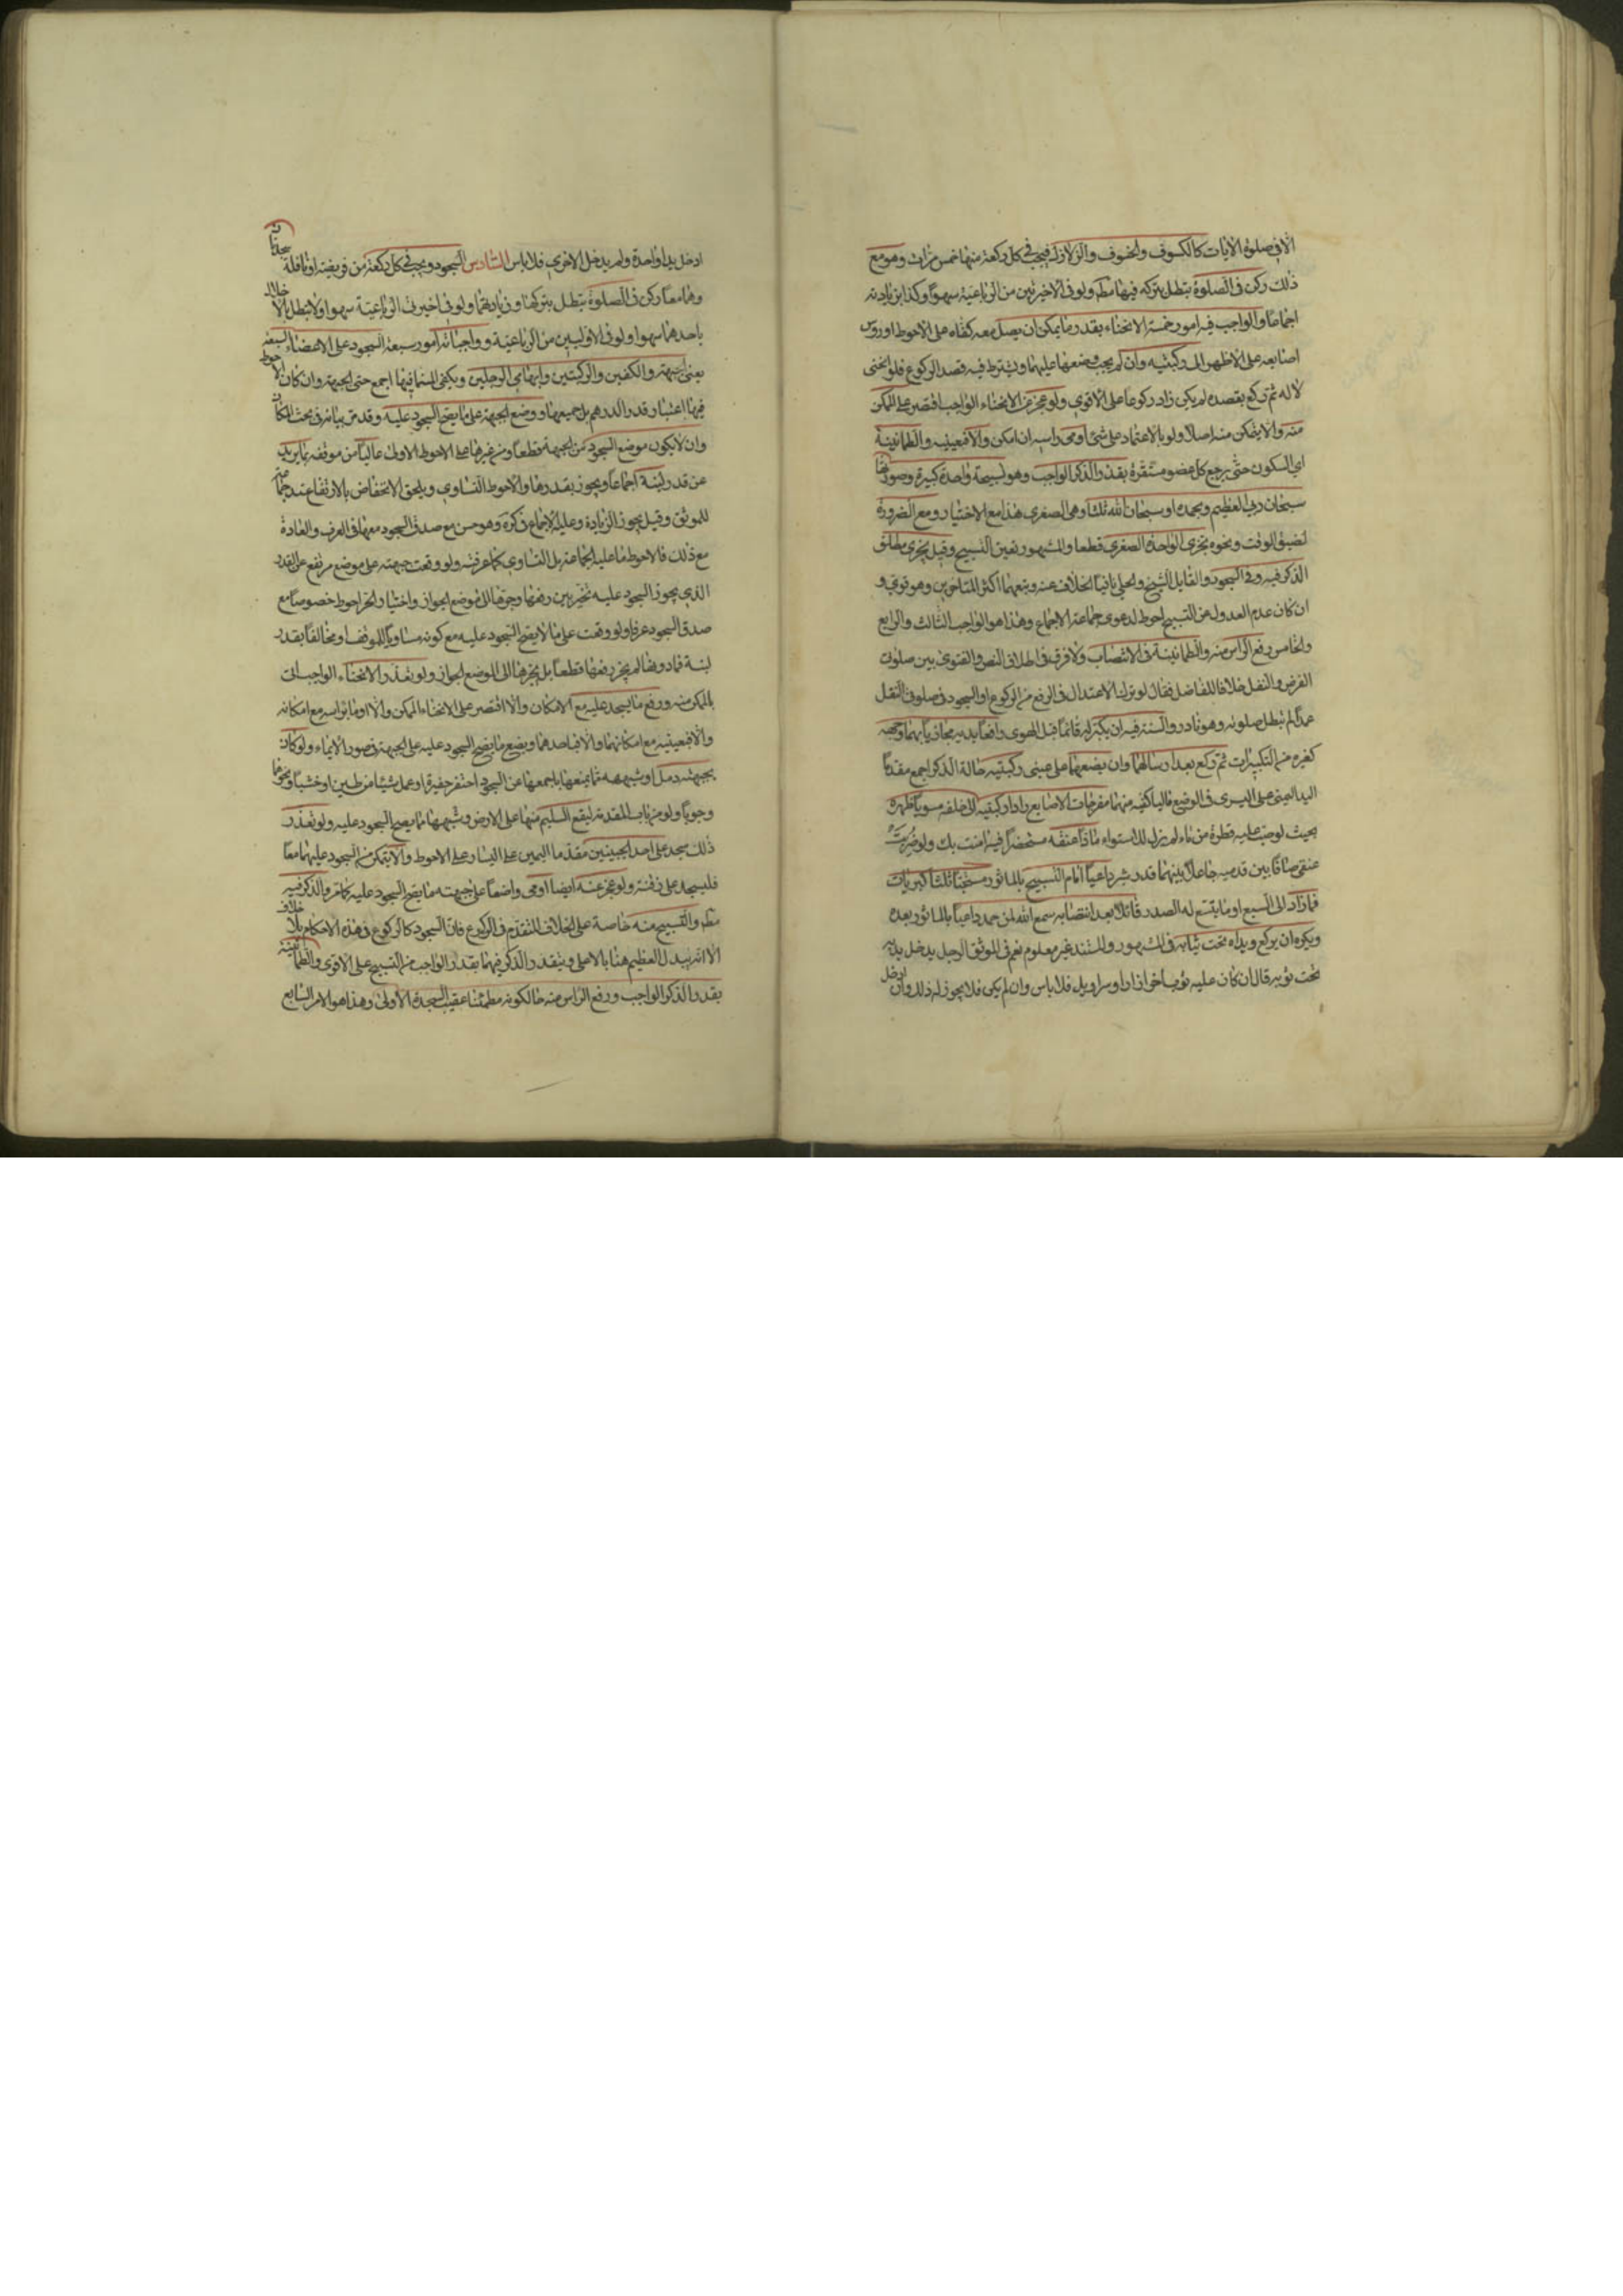 الا في صلوة الايات كالكسوف والخسوف والزلازل فيجب في كل ركعة منها خمس مرات وهو مع
ذلك ركن في الصلوة تبطل بتركه فيها مطم ولو في الاخيرتين من الرباعية سهوا وكذا بزيادته
اجماعا والواجب فيه امور خمسة الانحناء بقدر ما يمكن ان يصل معه كفاه على الاحوط او روس
اصابعه على الاظهر الى ركبتيه وان لم يجب وضعها عليهما ويشترط فيه قصد الركوع فلو انحنى
لا له ثم ركع بقصده لم يكن زاد ركوعا على الاقوى ولو عجز عن الانحناء الواجب اقتصر على الممكن
منه والا يتمكن منه اصلا ولو بالاعتماد على شئ اومى براسه ان امكن والا فبعينيه والطمانينة
اي السكون حتى يرجع كل عضو مستقره بقدر الذكر الواجب وهو تسبيحة واحدة كبيرة وصورتها
سبحان ربي العظيم وبحمده او سبحان الله ثلثا وهي الصغرى هذا مع الاختيار ومع الضرورة
لضيق الوقت ونحوه يجزى الواحدة الصغرى قطعا والمشهور تعين التسبيح وقيل يجزى مطلق
الذكر فيه وفي السجود والقايل الشيخ والحلى نافيا الخلاف عنه وتبعهما اكثر المتاخرين وهو قوي و
ان كان عدم العدول عن التسبيح احوط لدعوى جماعة الاجماع وهذا هو الواجب الثالث والرابع
والخامس رفع الراس منه والطمانينة في الانتصاب ولا فرق في اطلاق النص والفتوى بين صلوة
الفرض والنفل خلافا للفاضل فقال لو ترك الاعتدال في الرفع من الركوع او السجود في صلوة النفل
عمدا لم تبطل صلوته وهو نادر والسنة فيه ان يكبر له قائما قبل الهوى رافعا يديه محاذيا بهما وجهه
كغيره من التكبيرات ثم يركع بعد ارسالهما وان يضعهما على عيني ركبتيه حالة الذكر اجمع مقدما
اليد اليمنى على اليسرى في الوضع ماليا كفيه منهما مفرجات الاصابع رادا ركبتيه الى خلفه مسويا ظهره
بحيث لو صب عليه قطرة من ماء لم يزل للاستواء مادا عنقه مستحضرا فيه امنت بك ولو ضربت
عنقي صافا بين قدميه جاعلا بينهما قدر شبر داعيا امام التسبيح بالماثور مسبحا ثلثا كبريات
فما زاد الى السبع او ما يتسع له الصدر قائلا بعد انتصابه سمع الله لمن حمده داعيا بالماثور بعده
ويكره ان يركع ويداه تحت ثيابه في المشهور والمستند غير معلوم نعم في الموثق الرجل يدخل يديه
تحت ثوبه قال ان كان عليه ثوب اخر ازار او سراويل فلا باس وان لم يكن فلا يجوز له ذلك وان
ادخل يدا واحدة ولم يدخل الاخرى فلا باس السادس السجود ويجب في كل ركعة من فريضة او نافلة سجدتان
وهما معا ركن في الصلوة تبطل بتركهما وزيادتهما ولو في اخيرتي الرباعية سهوا ولا تبطل بالاخلال
باحدهما سهوا ولو في الاوليين من الرباعية وواجباته امور سبعة السجود على الاعضاء السبعة
يعني الجبهة والكفين والركبتين وابهامي الرجلين ويكفى المسما فيها اجمع حتى الجبهة وان كان الاحوط
فيها اعتبار قدر الدرهم بل جميعها ووضع الجبهة على ما يصح السجود عليه وقد مر بيانه في بحث المكان
وان لا يكون موضع السجود من الجبهة قطعا ومن غيرها على الاحوط الاولى عاليا من موقفه بما يزيد
عن قدر لبنة اجماعا ويجوز بقدرها والاحوط التساوي ويلحق الانخفاض بالارتفاع عند جماعة
للموثق وقيل يجوز الزيادة وعليه الاجماع في كره وهو حسن مع صدق السجود معها في العرف والعادة
مع ذلك فالاحوط ما عليه الجماعة بل التساوي كما عرفته ولو وقعت جبهته على موضع مرتفع عن القدر
الذي يجوز السجود عليه تخير بين رفعها وجرها الى موضع الجواز واختيار الجر احوط خصوصا مع
صدق السجود عرفا ولو وقعت على ما لا يصح السجود عليه مع كونه مساويا للموقف او مخالفا بقدر
لبنة فما دونها لم يجز رفعها قطعا بل يجرها الى الموضع الجواز ولو تعذر الانحناء الواجب اتى
بالممكن منه ورفع ما يسجد عليه مع الامكان والا اقتصر على الانحناء الممكن والا اوما براسه مع امكانه
والا فبعينيه مع امكانهما والا فباحدهما ويضع ما يصح السجود عليه على الجبهة في صور الايماء ولو كان
بجبهته دمل او شبهه مما يمنعها باجمعها عن السجود احتفر حفيرة او عمل شيئا من طين او خشب او نحوها
وجوبا ولو من باب المقدمة ليقع السليم منها على الارض وشبهها مما يصح السجود عليه ولو تعذر
ذلك سجد على احد الجبينين مقدما اليمين على اليسار على الاحوط والا يتمكن من السجود عليهما معا
فليسجد على ذقنه ولو عجز عنه ايضا اومى واضعا على جبهته ما يصح السجود عليه كما مر والذكر فيه
مطم والتسبيح منه خاصة على الخلاف المتقدم في الركوع فان السجود كالركوع في هذه الاحكام بلا خلاف
الا انه يبدل العظيم هنا بالاعلى ويتقدر الذكر فيهما بقدر الواجب من التسبيح على الاقوى والطمانينة
بقدر الذكر الواجب ورفع الراس منه حالكونه مطمئنا عقيب السجدة الاولى وهذا هو الامر السابع